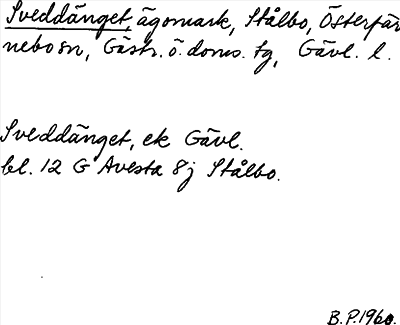 Sveddänget, ägomark, Stålbo, Österfär
nebo sn, Gästr. ö. doms. tg, Gävl. l.
Sveddänget, ek Gävl.
bl. 12 G Avesta 8j Stålbo.
B.P. 1960.